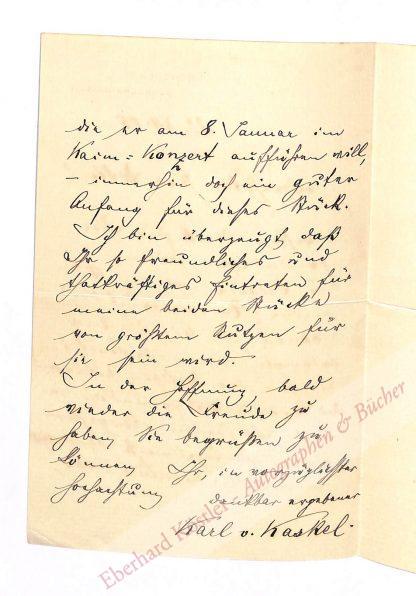 die er am 8. Januar im
Kaim=Konzert aufführen will,
– immerhin doch ein guter
Anfang für dieses Stück.
Ich bin überzeugt, daß
Ihr so freundliches und
thatkräftiges Eintreten für
meine beiden Stücke
von größtem Nutzen für
sie sein wird.
In der Hoffnung, bald
wieder die Freude zu
haben, Sie begrüßen zu
können, Ihr, in vorzüglichster
Hochachtung dankbar ergebener
Karl v. Kaskel.
Eberhard Köstler - Autographen & Bücher